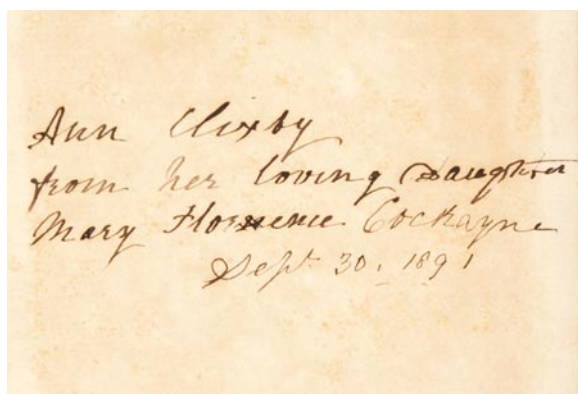 Ann Clixby
from her loving Daughter
Mary Florence Cockayne
Sept. 30. 1891